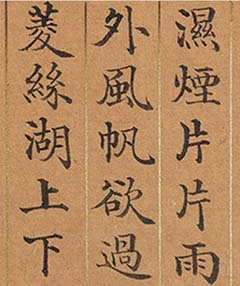 濕煙片片雨
外風帆欲過
菱絲湖上下